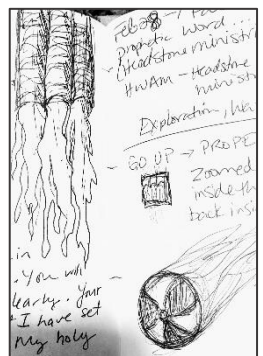 prophetic word...
(Headstone ministri
HWAM - Headstone
ministr
Exploration,
GO UP → PROPE
Zoomed
inside th
back insi
in
. You will
learly. Your
I have set
My holy